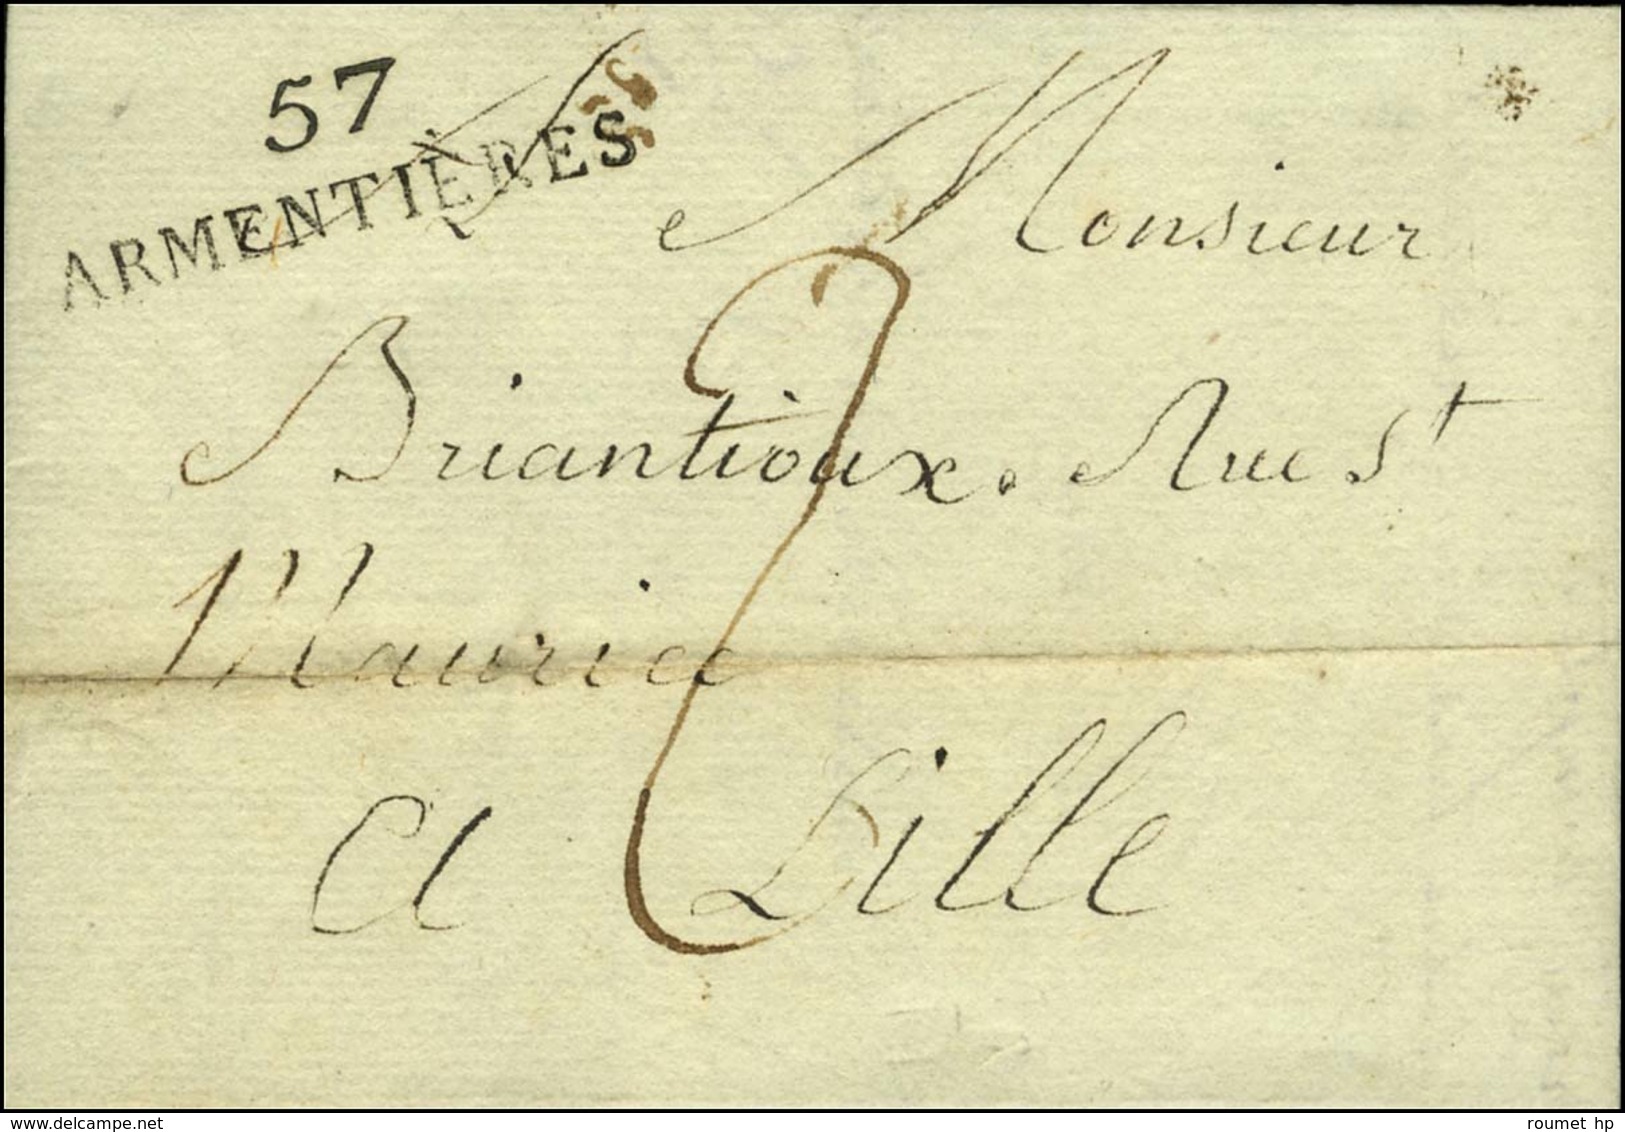 57
ARMENTIÈRES
A Monsieur
Briantioux. Rue St
Maurice
A Lille
2
delcampe.net
roumet hp